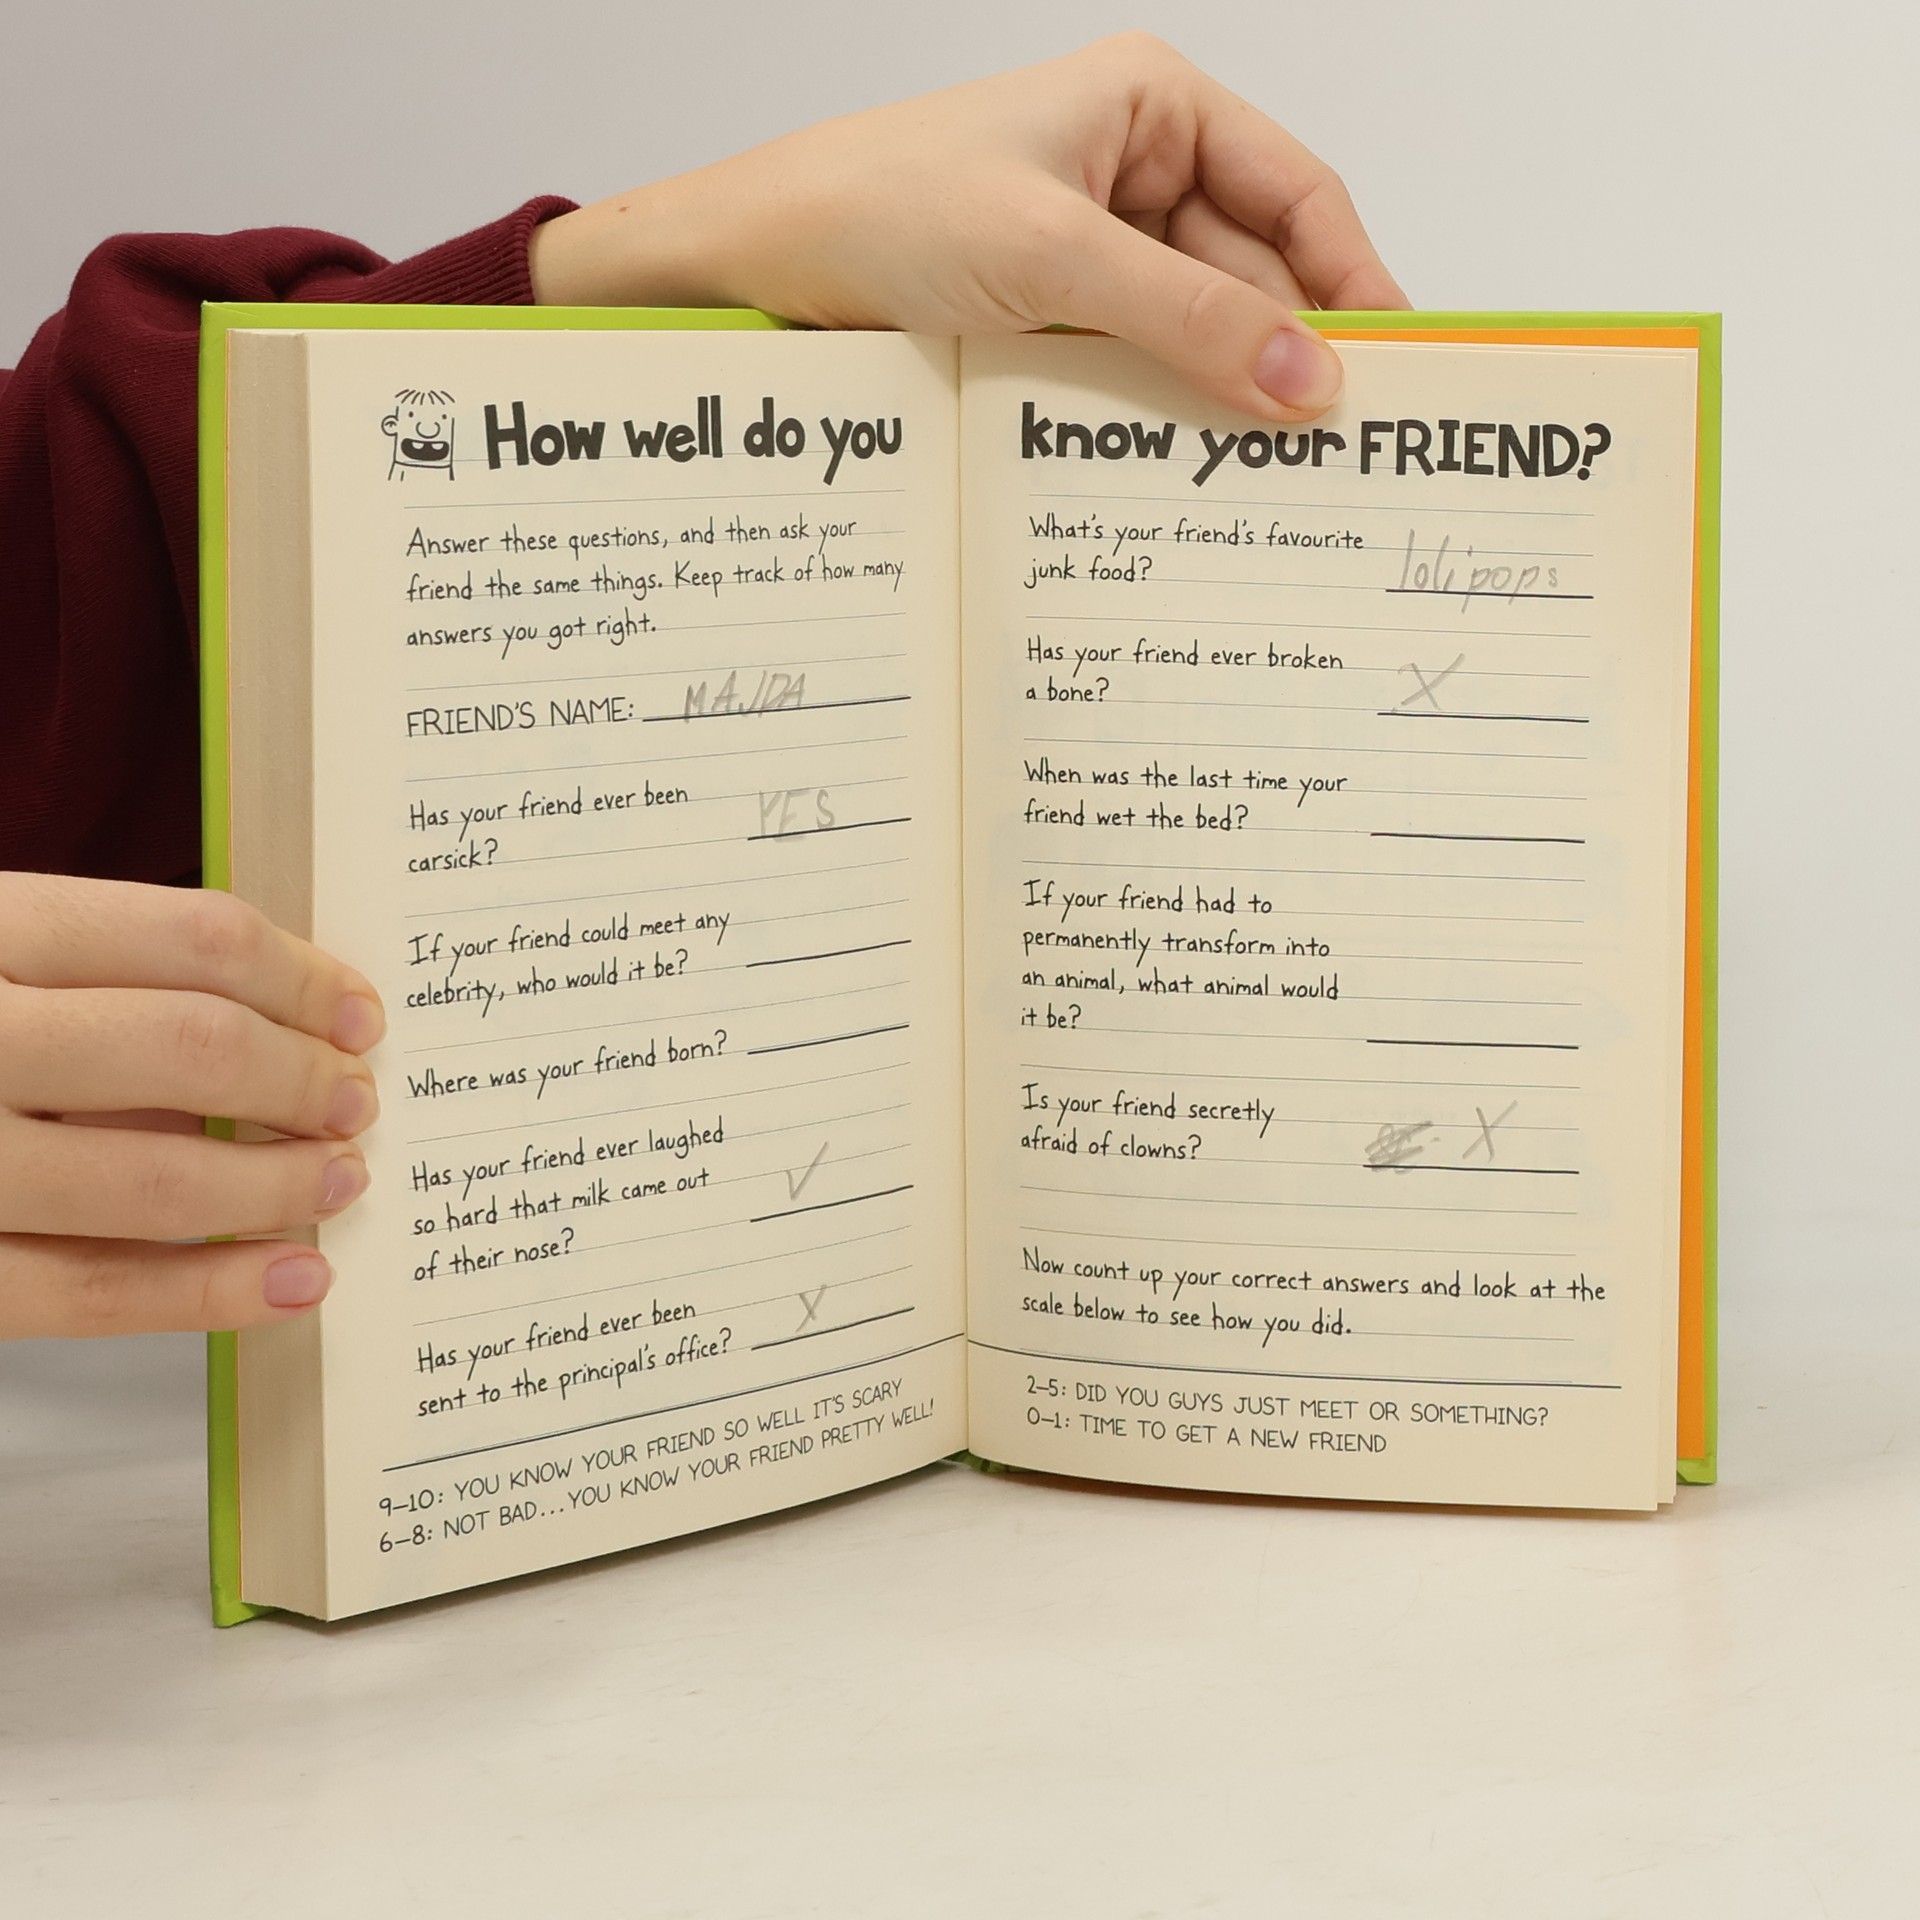 How well do you
Answer these questions, and then ask your
friend the same things. Keep track of how many
answers you got right.
FRIEND'S NAME: MAJDA
Has your friend ever been
carsick? YES
If your friend could meet any
celebrity, who would it be?
Where was your friend born?
Has your friend ever laughed
so hard that milk came out ✓
of their nose?
Has your friend ever been
sent to the principal's office? X
9–10: YOU KNOW YOUR FRIEND SO WELL IT'S SCARY
6–8: NOT BAD...YOU KNOW YOUR FRIEND PRETTY WELL!
know your FRIEND?
What's your friend's favourite
junk food? lolipops
Has your friend ever broken
a bone? X
When was the last time your
friend wet the bed?
If your friend had to
permanently transform into
an animal, what animal would
it be?
Is your friend secretly
afraid of clowns? X
Now count up your correct answers and look at the
scale below to see how you did.
2–5: DID YOU GUYS JUST MEET OR SOMETHING?
0–1: TIME TO GET A NEW FRIEND